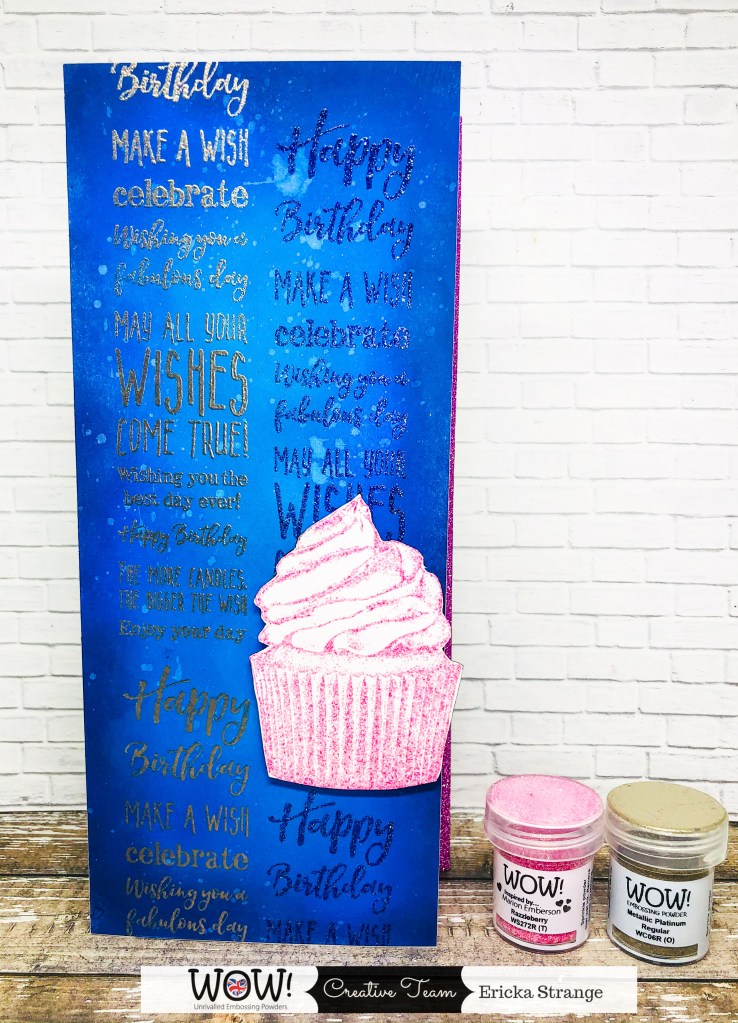 Birthday
MAKE A WISH
celebrate
Wishing you a
fabulous day
MAY ALL YOUR
WISHES
COME TRUE!
Wishing you the
best day ever!
Happy Birthday
THE MORE CANDLES,
THE BIGGER THE WISH
Enjoy your day
Happy
Birthday
MAKE A WISH
celebrate
Wishing you a
fabulous day
Happy
Birthday
MAKE A WISH
celebrate
Wishing you a
fabulous day
MAY ALL YOUR
WISHES
Happy
Birthday
MAKE A WISH
WOW!
Inspired by...
Marion Emberson
Razzleberry
WS272R (T)
WOW!
EMBOSSING POWDER
Metallic Platinum
Regular
WC06R (O)
WOW!
Unrivalled Embossing Powders
Creative Team
Ericka Strange